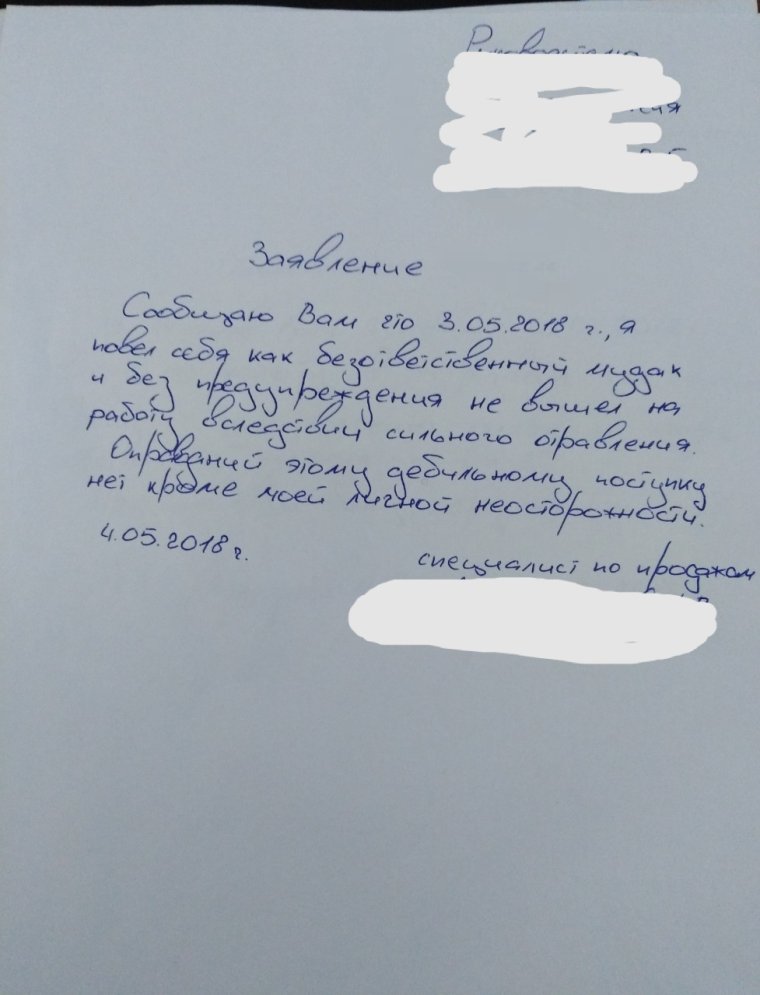 Заявление
Сообщаю Вам что 3.05.2018 г., я
повел себя как безответственный мудак
и без предупреждения не вышел на
работу вследствии сильного отравления.
Опрваданий этому дебильному поступку
нет кроме моей личной неосторожности.
4.05.2018 г.
специалист по продажам